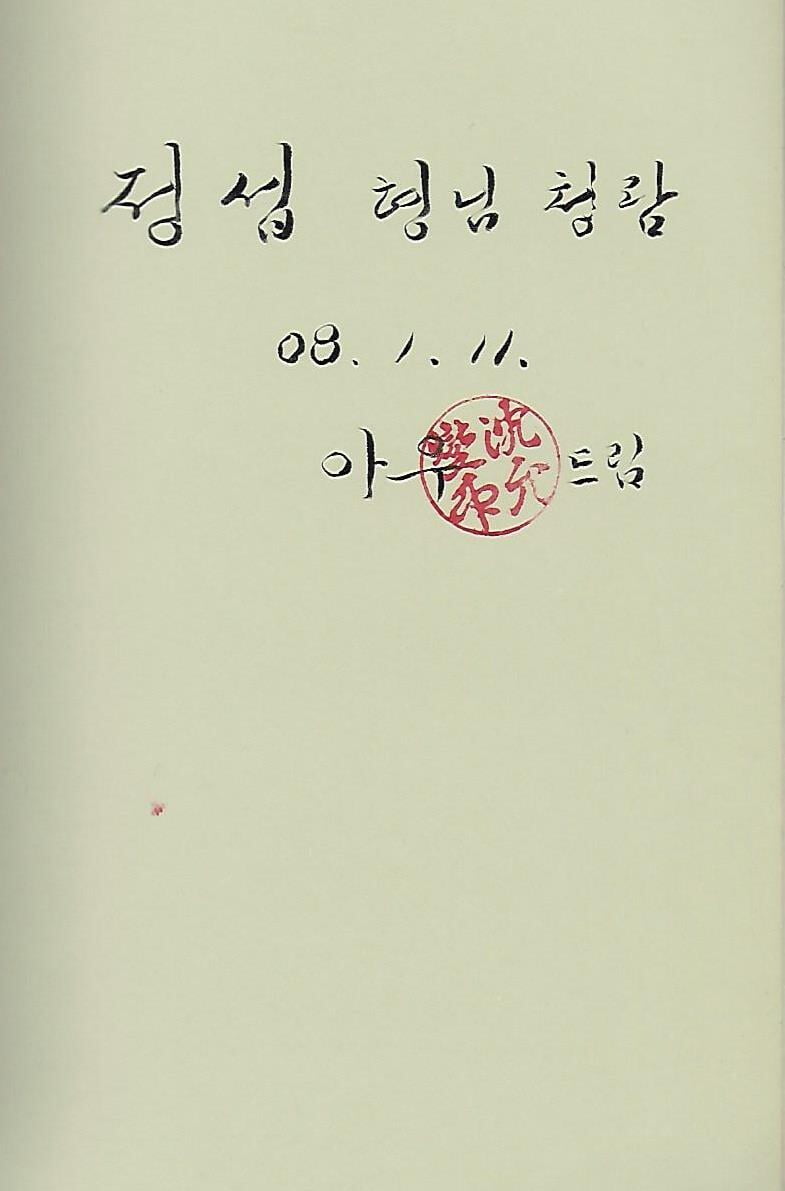 정섭 형님 청람
08. 1. 11.
아우 드림